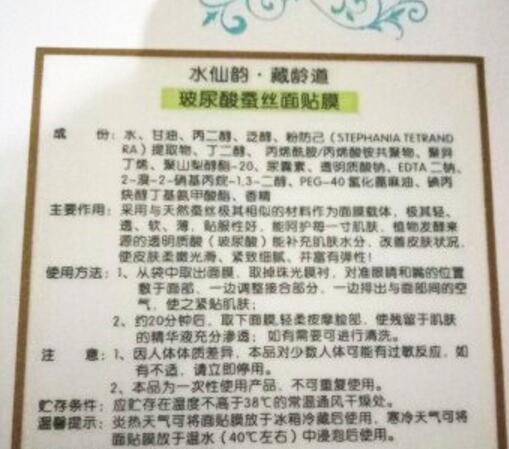 水仙韵·藏龄道
玻尿酸蚕丝面贴膜
成 份：水、甘油、丙二醇、泛醇、粉防己（STEPHANIA TETRAND
RA）提取物、丁二醇、丙烯酰胺/丙烯酸铵共聚物、聚异
丁烯、聚山梨醇酯-20、尿囊素、透明质酸钠、EDTA 二钠、
2-溴-2-硝基丙烷-1,3-二醇、PEG-40氢化蓖麻油、碘丙
炔醇丁基氨甲酸酯、香精
主要作用：采用与天然蚕丝极其相似的材料作为面膜载体，极其轻、
透、软、薄，贴服性好，能呵护每一寸肌肤，植物发酵来
源的透明质酸（玻尿酸）能补充肌肤水分，改善皮肤状况，
使皮肤柔嫩光滑、紧致细腻、并富有弹性！
使用方法：1、从袋中取出面膜，取掉珠光膜衬，对准眼睛和嘴的位置
敷于面部，一边调整接合部分，一边排出与面部间的空
气，使之紧贴肌肤；
2、约20分钟后，取下面膜,轻柔按摩脸部，使残留于肌肤
的精华液充分渗透；如有需要可进行清洗。
注 意：1、因人体体质差异，本品对少数人体可能有过敏反应，如
有不适，请立即停用。
2、本品为一次性使用产品，不可重复使用。
贮存条件：应贮存在温度不高于38℃的常温通风干燥处。
温馨提示：炎热天气可将面贴膜放于冰箱冷藏后使用，寒冷天气可将
面贴膜放于温水（40℃左右）中浸泡后使用。